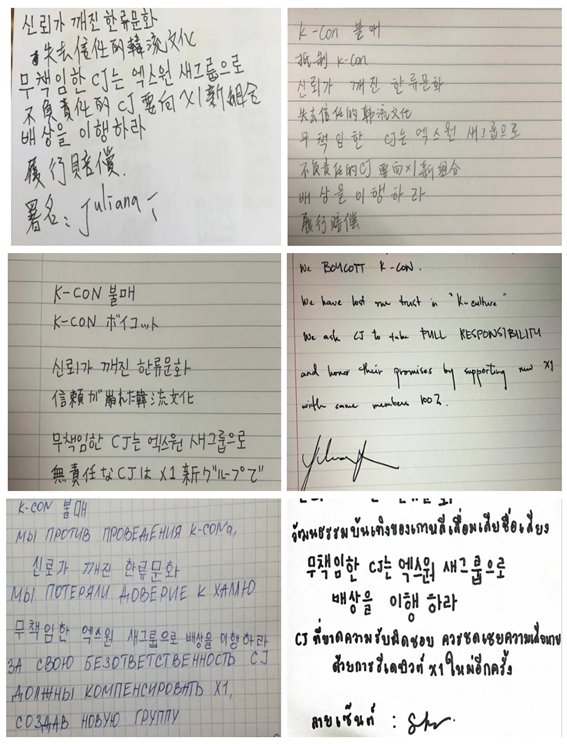 신뢰가 깨진 한류문화
失去信任的韓流文化
무책임한 CJ는 엑스원 새그룹으로
不負責任的 CJ 要向 X1 新組合
배상을 이행하라
履行賠償.
署名: Juliana
K-Con 불매
抵制 K-Con
신뢰가 깨진 한류문화
失去信任的韩流文化
무책임한 CJ는 엑스원 새그룹으로
不负责任的CJ 要向X1新组合
배상을 이행하라
履行赔偿
K-CON 불매
K-CON ボイコット
신뢰가 깨진 한류문화
信頼が崩れた韓流文化
무책임한 CJ는 엑스원 새그룹으로
無責任なCJは X1 新グループで
We BOYCOTT K-CON.
We have lost our trust in "K-culture"
We ask CJ to take FULL RESPONSIBILITY
and honor their promises by supporting new X1
with same members 100%.
K-CON 불매
МЫ ПРОТИВ ПРОВЕДЕНИЯ K-CONа,
신뢰가 깨진 한류문화
МЫ ПОТЕРЯЛИ ДОВЕРИЕ К ХАЛЮ
무책임한 엑스원 새그룹으로 배상을 이행하라
ЗА СВОЮ БЕЗОТВЕТСТВЕННОСТЬ CJ
ДОЛЖНЫ КОМПЕНСИРОВАТЬ X1,
СОЗДАВ НОВУЮ ГРУППУ
วัฒนธรรมบันเทิงของเกาหลีเสื่อมเสียชื่อเสียง
무책임한 CJ는 엑스원 새그룹으로
배상을 이행하라
CJ ที่ขาดความรับผิดชอบ ควรชดเชยความเสียหาย
ด้วยการรีเดบิวต์ X1 ใหม่อีกครั้ง
ลายเซ็นต์ :